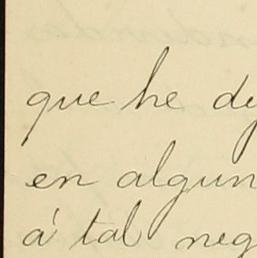 que he de
en algun
á tal neg